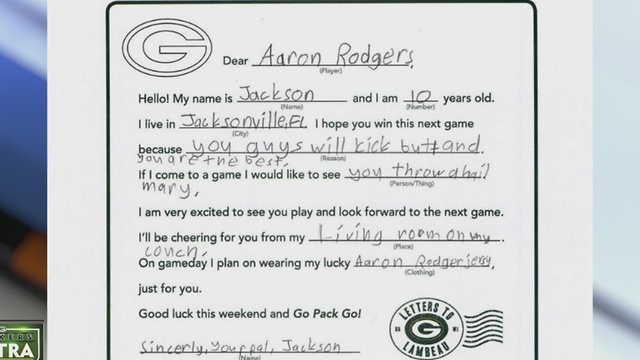 G
Dear Aaron Rodgers,
(Player)
Hello! My name is Jackson and I am 10 years old.
(Name) (Number)
I live in Jacksonville, FL I hope you win this next game
(City)
because you guys will kick butt and.
you are the best. (Reason)
If I come to a game I would like to see you throw a hail
(Person/Thing)
mary,
I am very excited to see you play and look forward to the next game.
I'll be cheering for you from my Living room on my
(Place)
couch.
On gameday I plan on wearing my lucky Aaron Rodger jersy,
(Clothing)
just for you.
Good luck this weekend and Go Pack Go!
Sincerly, Your pal, Jackson
(Name)
LETTERS TO
G
LAMBEAU
TRA